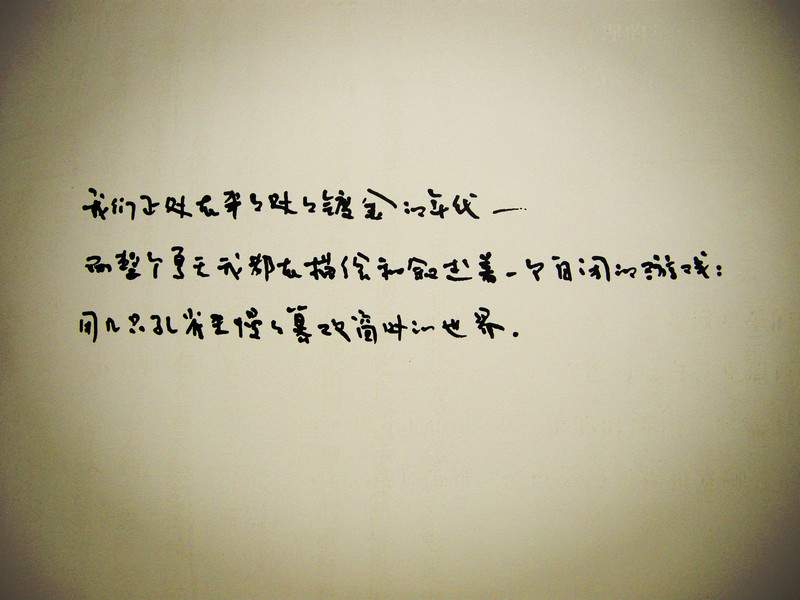 我们正处在镀金的年代一
而整个夏天我都在描绘和叙述着一个自闭的游戏：
用几只孔雀来慢慢篡改窗外的世界.